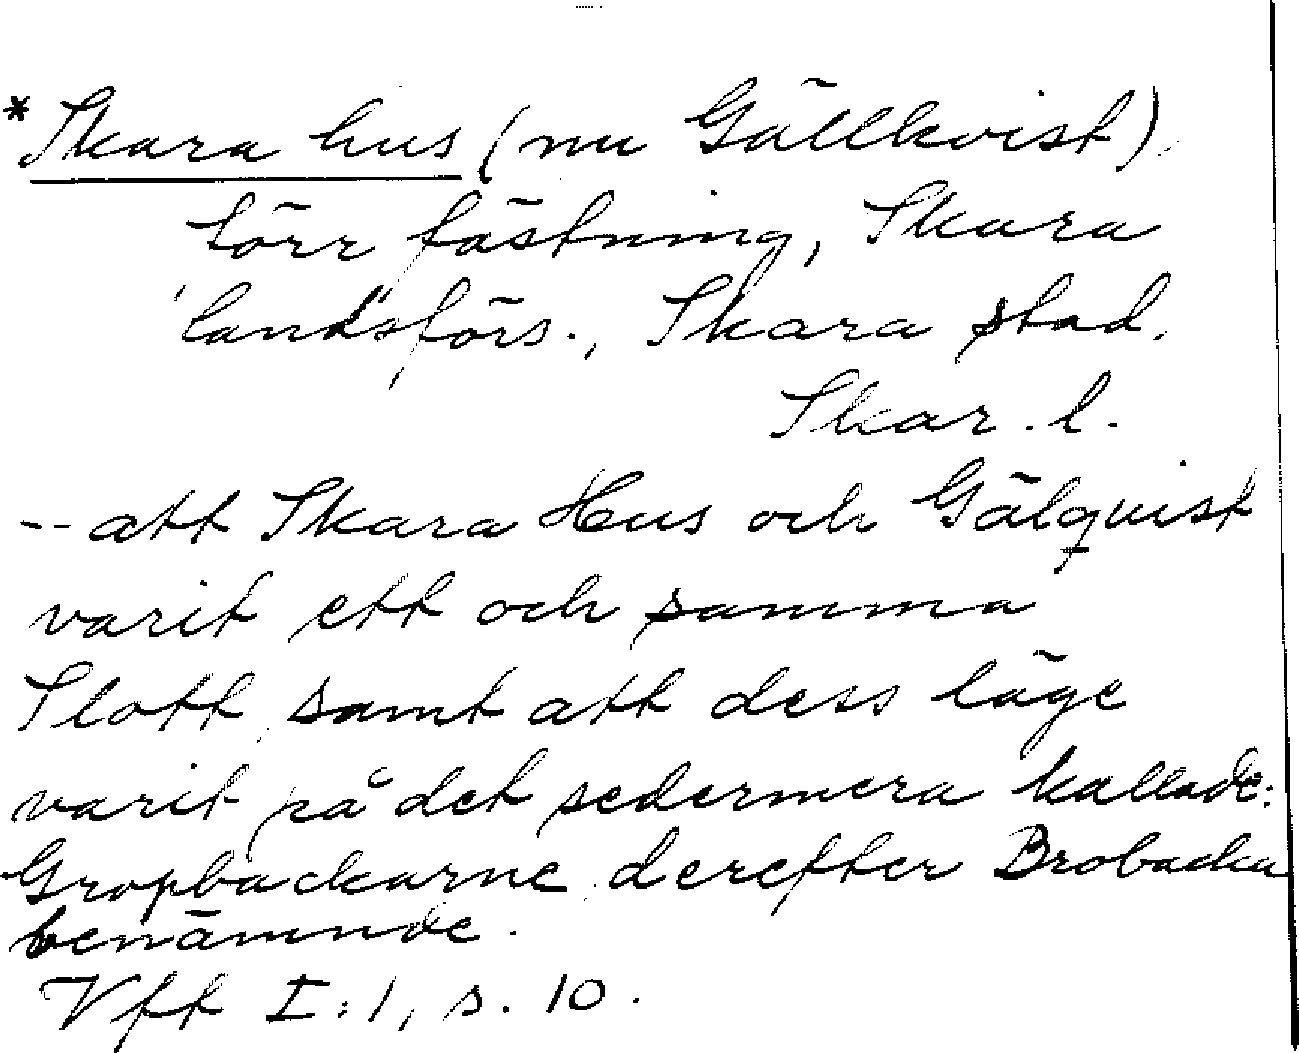 *Skara hus (nu Gällkvist)
förr fästning, Skara
landsförs., Skara stad.
Skar. l.
-- att Skara Hus och Gälqvist
varit ett och samma
Slott samt att dess läge
varit på det sedermera kallade:
Gropbackarne derefter Brobacka
benämnde.
Vft I:1, s. 10.